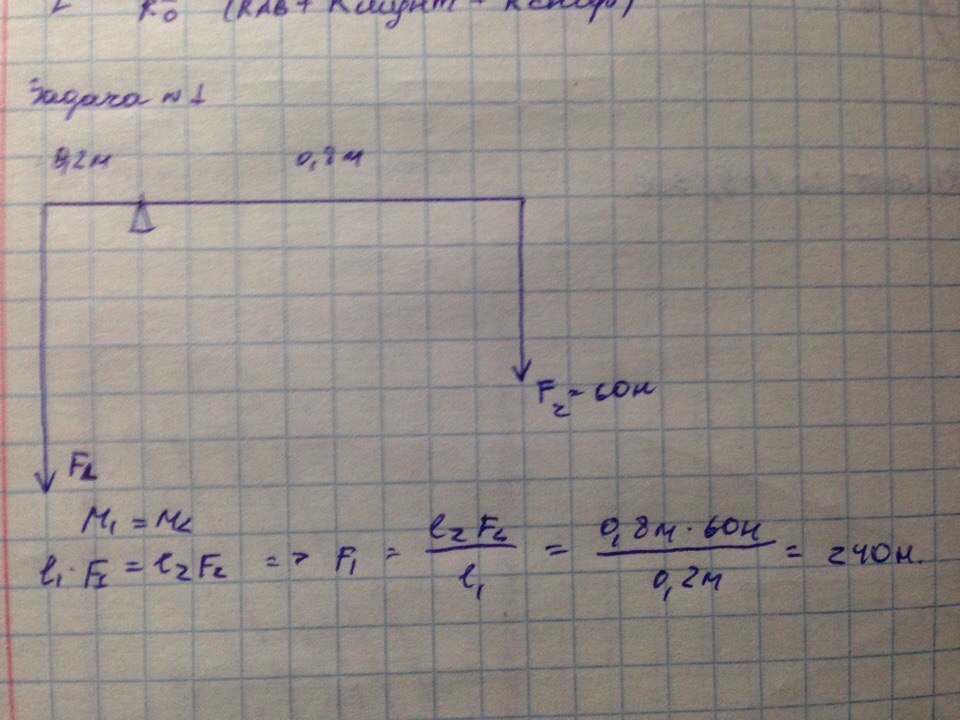 Задача №1
0,2м 0,8м
F₂=60н
F₁
M₁ = M₂
l₁·F₁ = l₂F₂ => F₁ = l₂F₂/l₁ = 0,8м·60н/0,2м = 240н.